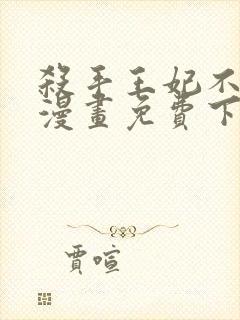 殺手王妃不
漫畫免費下
賈喧